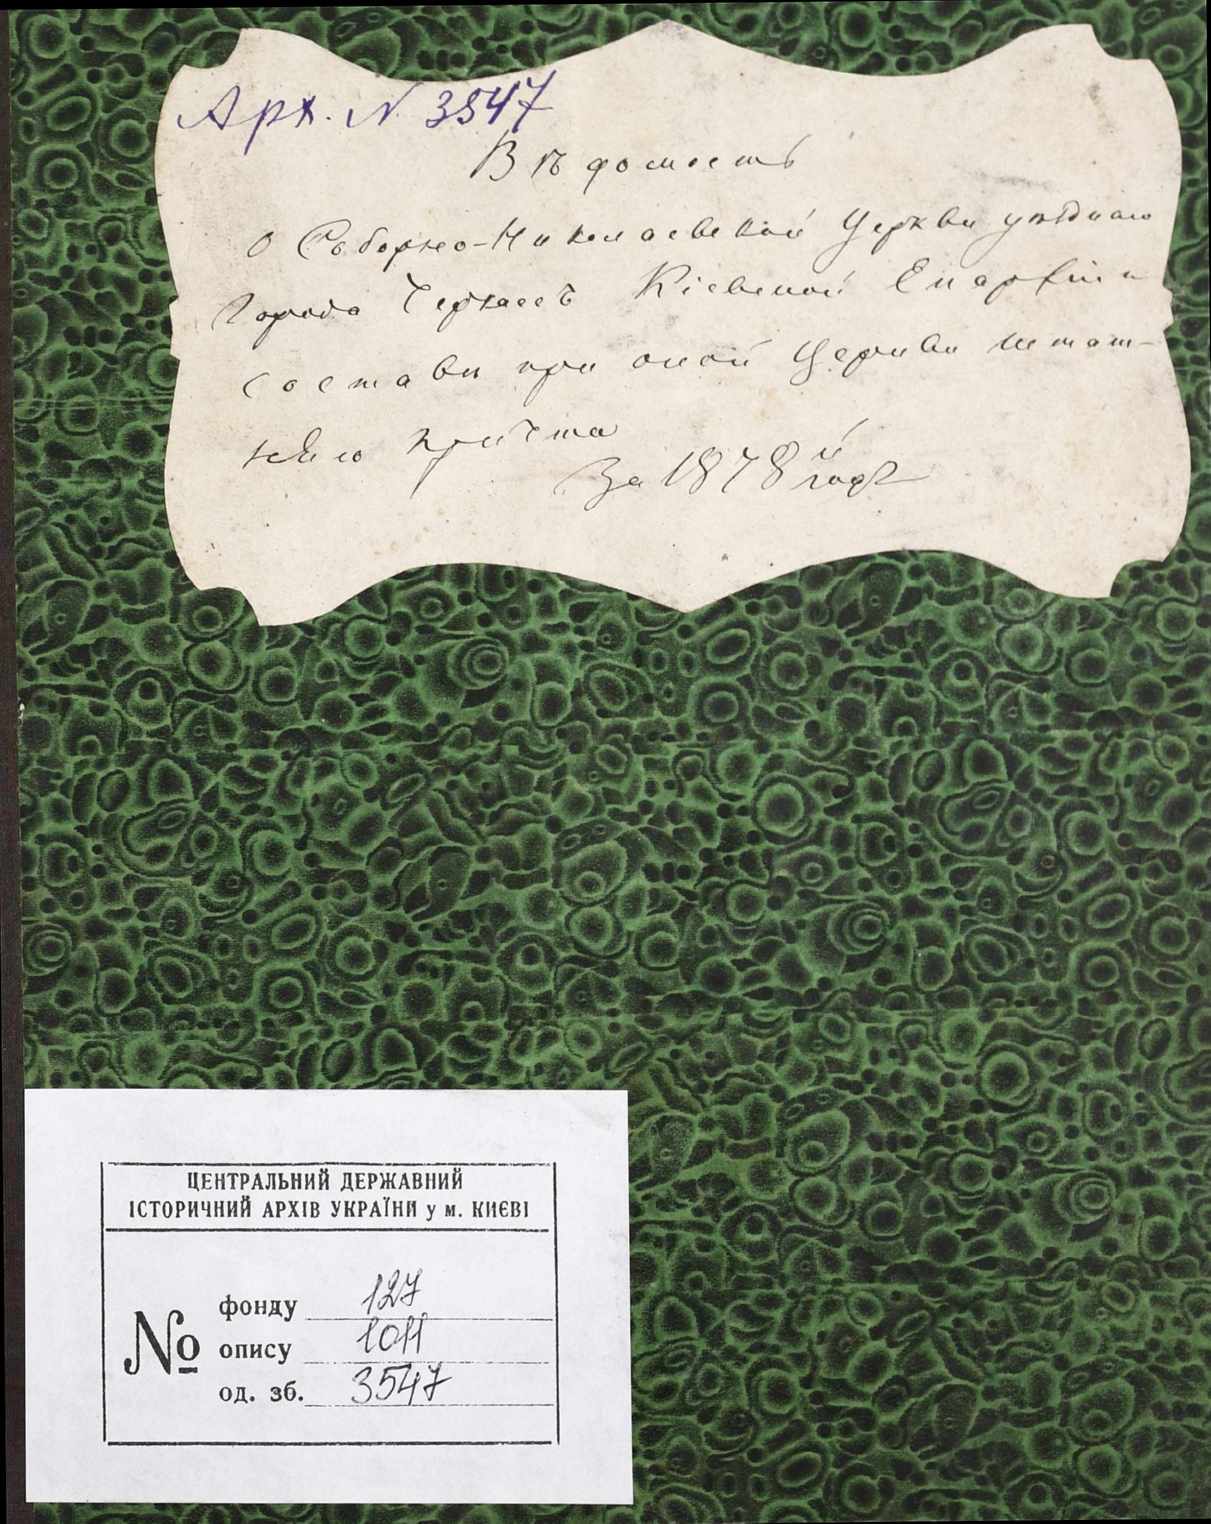 Арх. N 3547
Вѣдомость
о Соборно-Николаевской Церкви уѣзднаго
Города Черкассъ Кіевской Епархіи и
составѣ при оной Церкви штат-
наго причта
За 1878й годъ
ЦЕНТРАЛЬНИЙ ДЕРЖАВНИЙ
ІСТОРИЧНИЙ АРХІВ УКРАЇНИ у м. КИЄВІ
№
фонду 127
опису 1011
од. зб. 3547